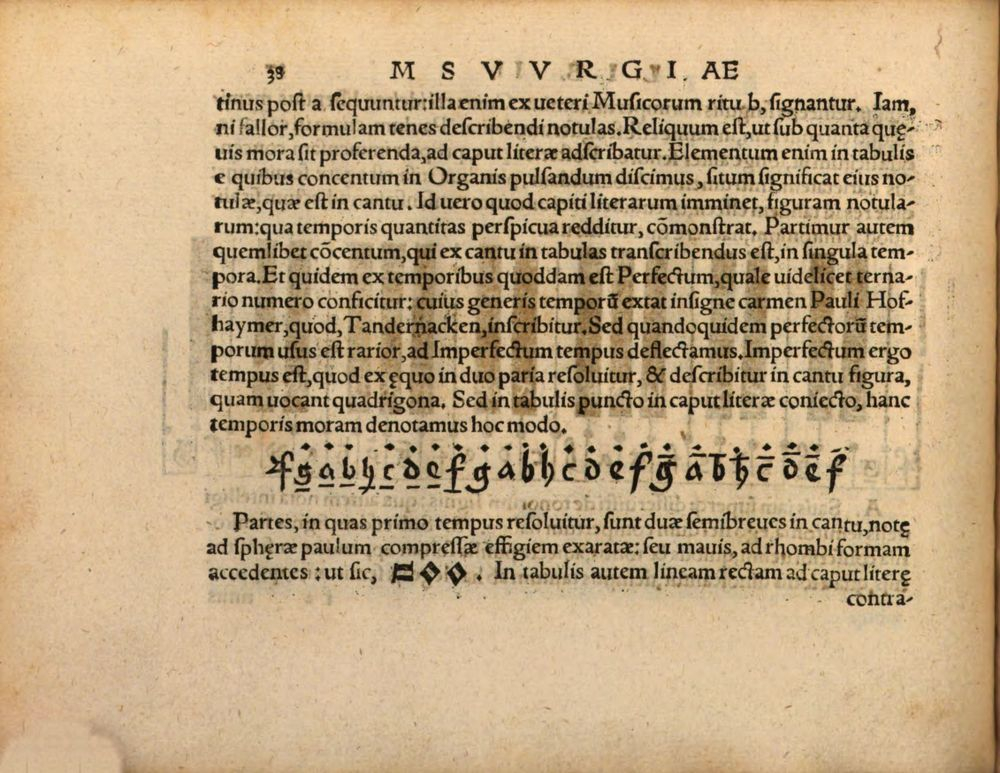 38 M S V V R G I AE
tinus post a sequuntur: illa enim ex ueteri Musicorum ritu b, signantur. Iam,
ni fallor, formulam tenes describendi notulas. Reliquum est, ut sub quanta quę-
uis mora sit proferenda, ad caput literæ adscribatur. Elementum enim in tabulis
e quibus concentum in Organis pulsandum discimus, situm significat eius no-
tulæ, quæ est in cantu. Id uero quod capiti literarum imminet, figuram notula-
rum: qua temporis quantitas perspicua redditur, cõmonstrat. Partimur autem
quemlibet cõcentum, qui ex cantu in tabulas transcribendus est, in singula tem-
pora. Et quidem ex temporibus quoddam est Perfectum, quale uidelicet terna-
rio numero conficitur: cuius generis temporũ extat insigne carmen Pauli Hof-
haymer, quod, Tandernacken, inscribitur. Sed quandoquidem perfectorũ tem-
porum usus est rarior, ad Imperfectum tempus deflectamus. Imperfectum ergo
tempus est, quod ex ęquo in duo paria resoluitur, & describitur in cantu figura,
quam uocant quadrigona. Sed in tabulis puncto in caput literæ coniecto, hanc
temporis moram denotamus hoc modo.
f g a b h c d e f g a b h c d e f g a b h c d e f
Partes, in quas primo tempus resoluitur, sunt duæ semibreues in cantu, notę
ad sphęræ paulum compressæ effigiem exaratæ: seu mauis, ad rhombi formam
accedentes: ut sic, . In tabulis autem lineam rectam ad caput literę
contra-